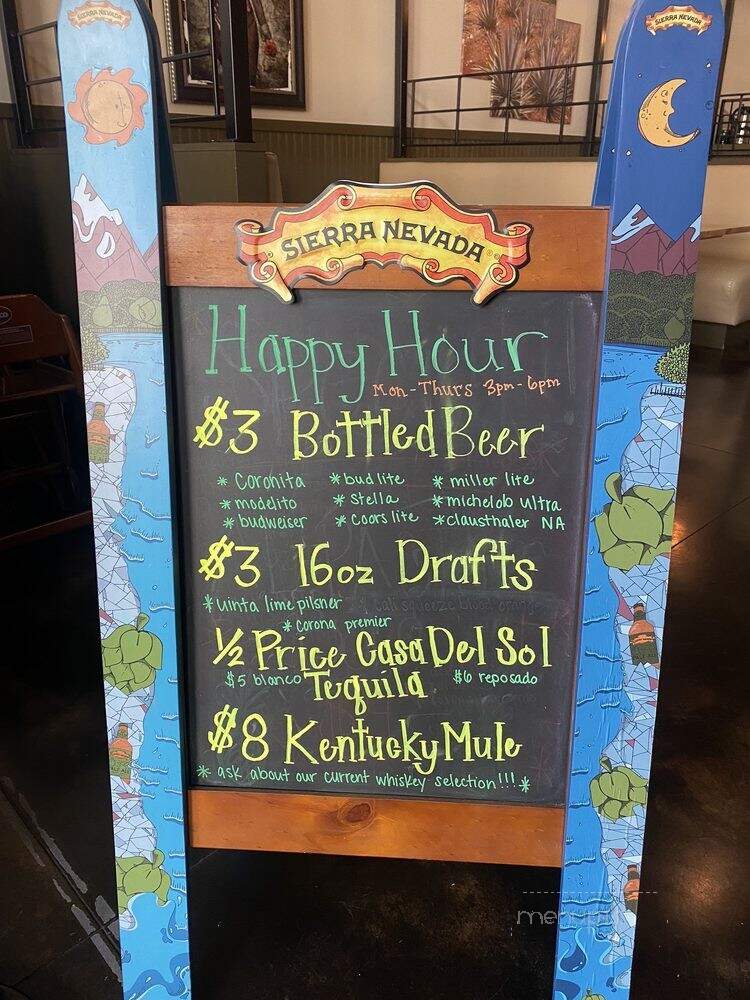 SIERRA NEVADA
SIERRA NEVADA
SIERRA NEVADA
Happy Hour
Mon-Thurs 3pm-6pm
$3 Bottled Beer
* Coronita * bud lite * miller lite
* modelito * Stella * michelob ultra
* budweiser * coors lite * clausthaler NA
$3 16oz Drafts
* uinta lime pilsner cali squeeze blood orange
* corona premier
1/2 Price Casa Del Sol
$5 blanco Tequila $6 reposado
$8 Kentucky Mule
* ask about our current whiskey selection!!! *